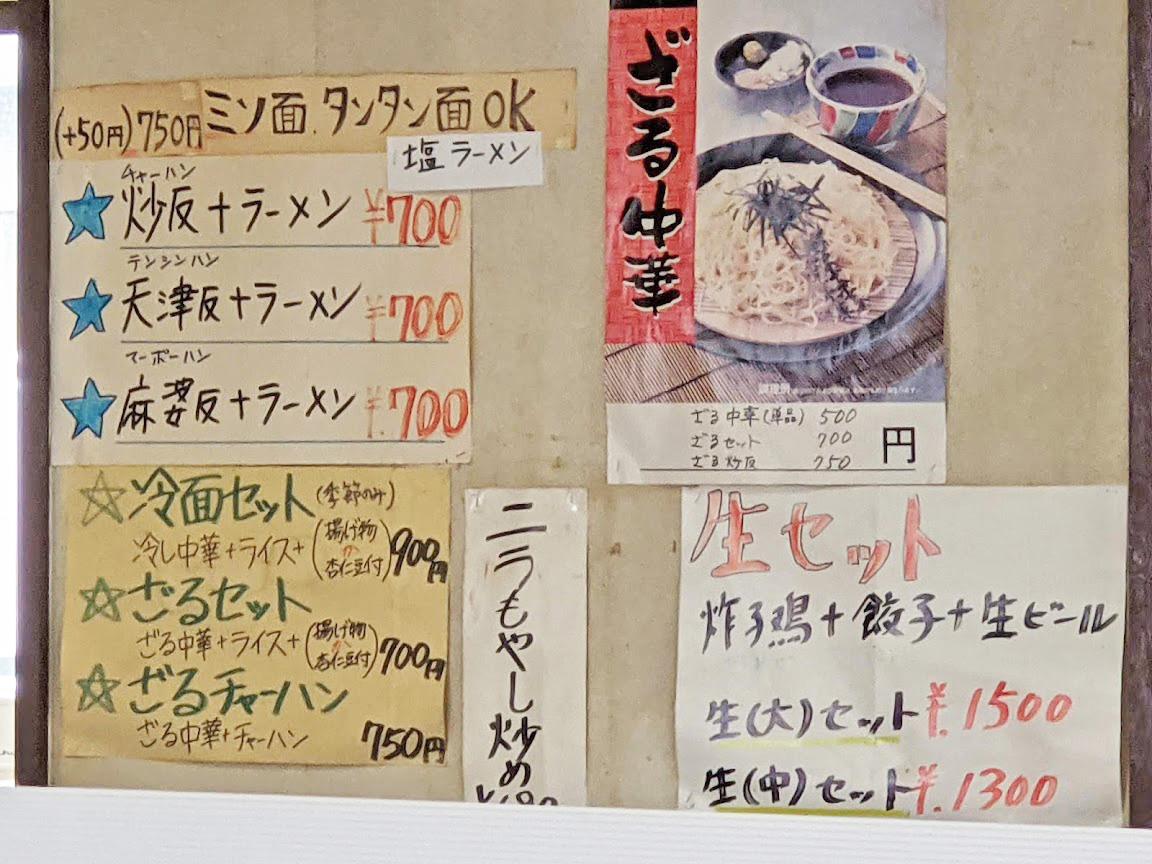 (+50円)750円 ミソ面.タンタン面OK
塩ラーメン
チャーハン
炒反+ラーメン ¥700
テンシンハン
天津反+ラーメン ¥700
マーボーハン
麻婆反+ラーメン ¥700
冷面セット(季節のみ)
冷し中華+ライス+(揚げ物 杏仁豆付)900円
ざるセット
ざる中華+ライス+(揚げ物 杏仁豆付)700円
ざるチャーハン
ざる中華+チャーハン 750円
ニラもやし炒め
ざる中華
ざる中華(単品) 500
ざるセット 700
ざる炒反 750
円
生セット
炸子鶏+餃子+生ビール
生(大)セット ¥.1500
生(中)セット ¥.1300